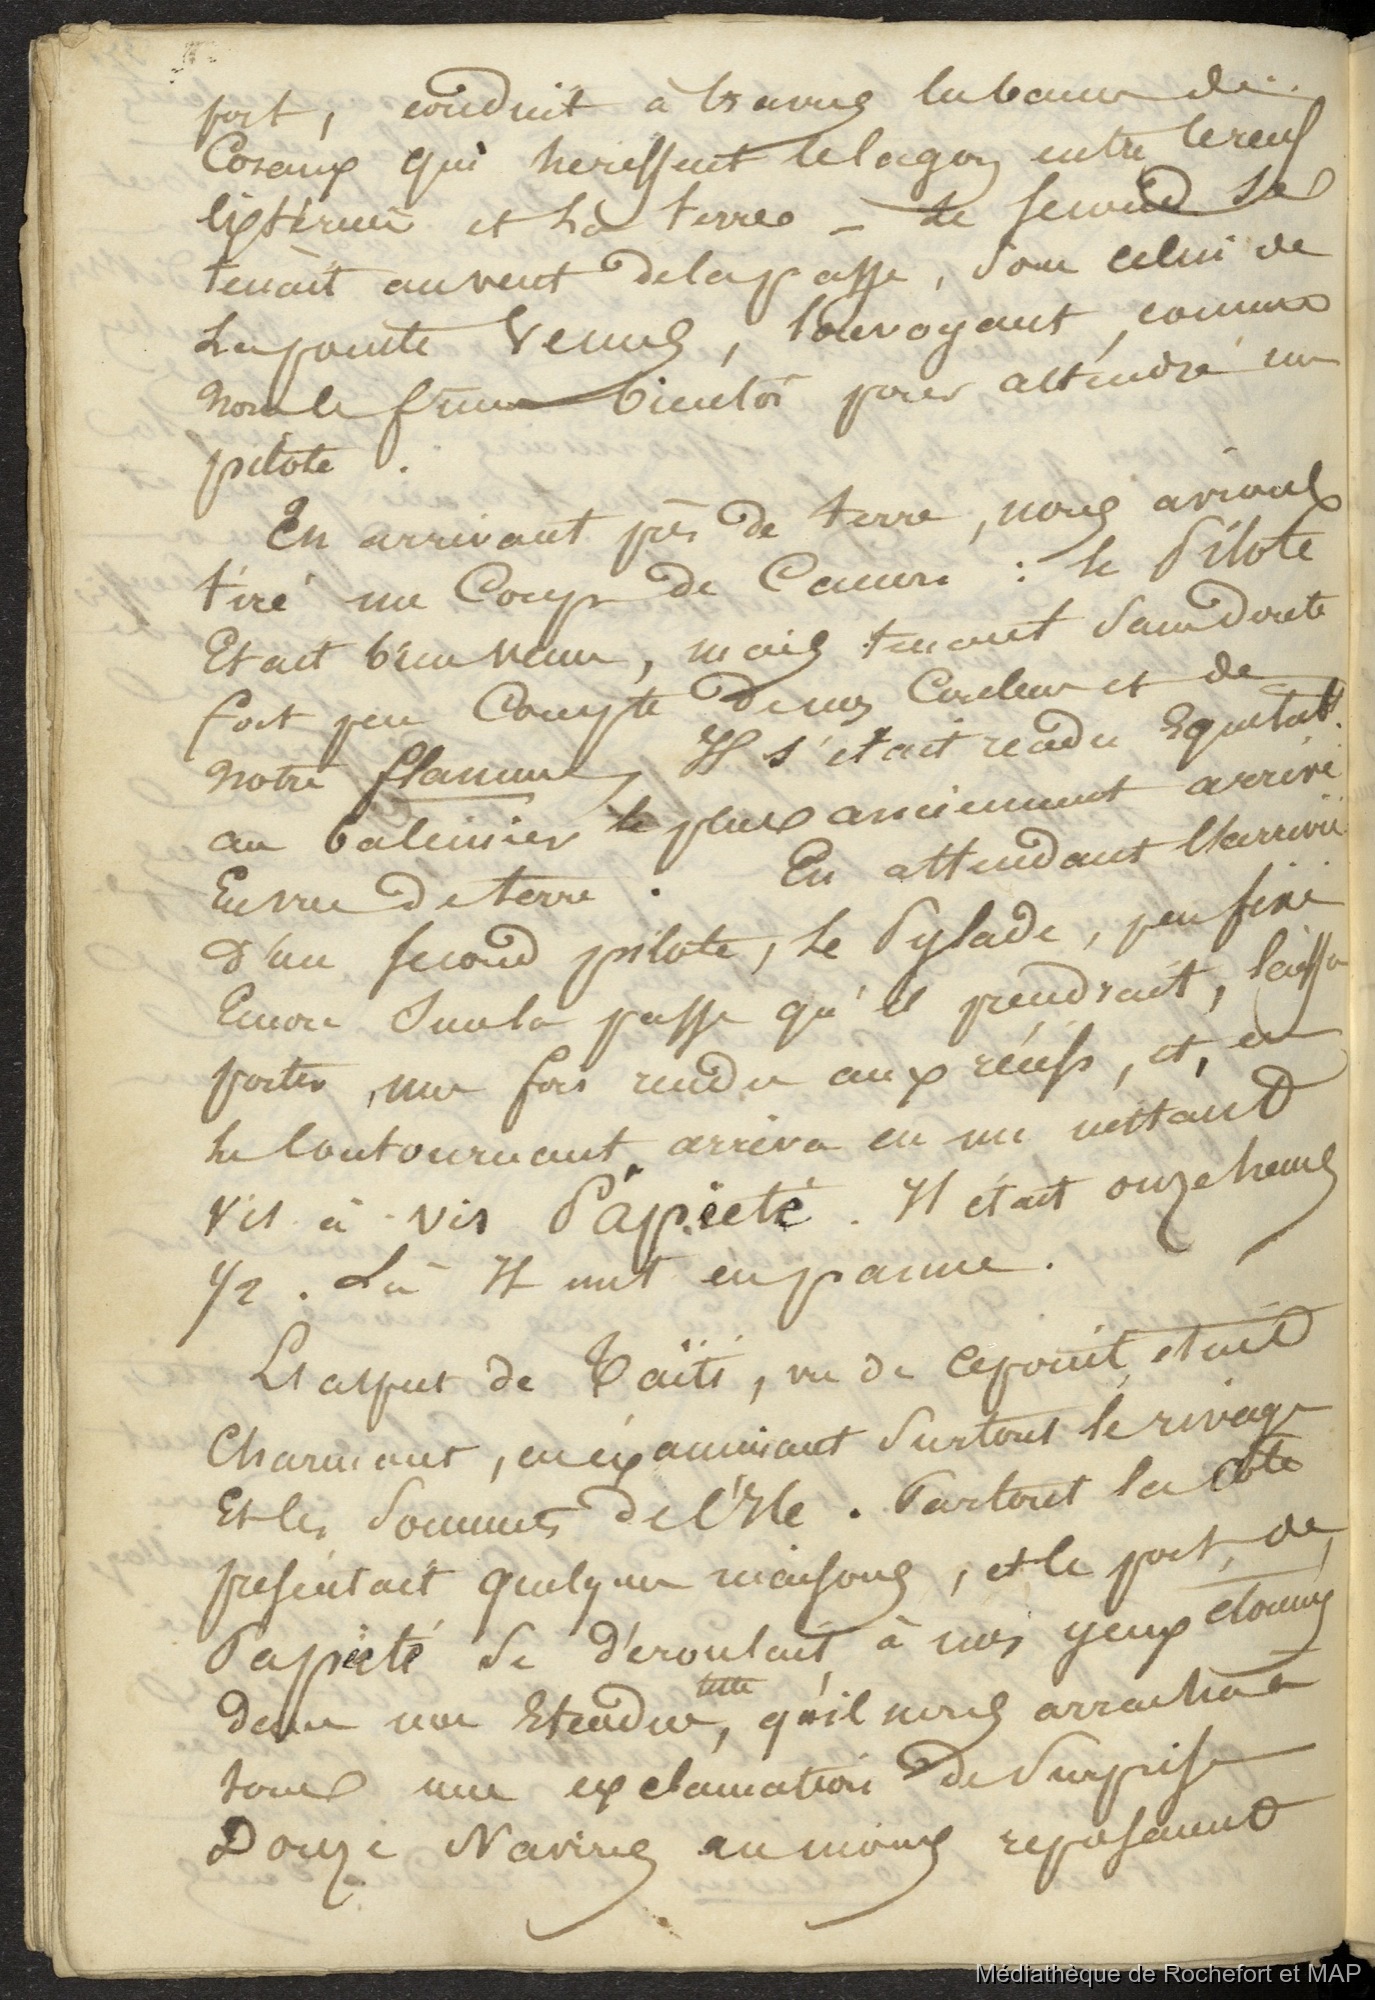 port, conduit à travers les bancs de
Coraux qui herissent le lagon entre le recif
Extérieur et la terre _ Le second se
tenait au vent de la passe, sous celui de
La pointe Venus, louvoyant, comme
nous le fîmes bientôt pour attendre un
pilote .
En arrivant près de terre, nous avions
tiré un Coup de Canon : le Pilote
Etait bien venu, mais tenant sans doute
fort peu Compte de nos Couleurs et de
notre flamme, Il s'était rendu
au baleinier le plus anciennement arrivé
En vue de terre . En attendant l'arrivée
d'un second pilote, le Pylade, peu fixé
Encore sur la passe qu'il prendrait, laissa
porter, une fois rendu aux récifs, et, en
les contournant, arriva en un instant
vis à vis Papéeté . Il était onze heures
1/2 . Là Il mit en panne .
L'aspect de Taïti, vu de ce point, était
Charmant, en examinant surtout le rivage
Et les sommets de l'Ile . Partout la côte
présentait quelques maisons, et le port de
Papéeté se déroulait à nos yeux étonnés
dans une Etendue telle, qu'il nous arracha à
tous une exclamation de surprise
Douze Navires au moins reposaient
Médiathèque de Rochefort et MAP